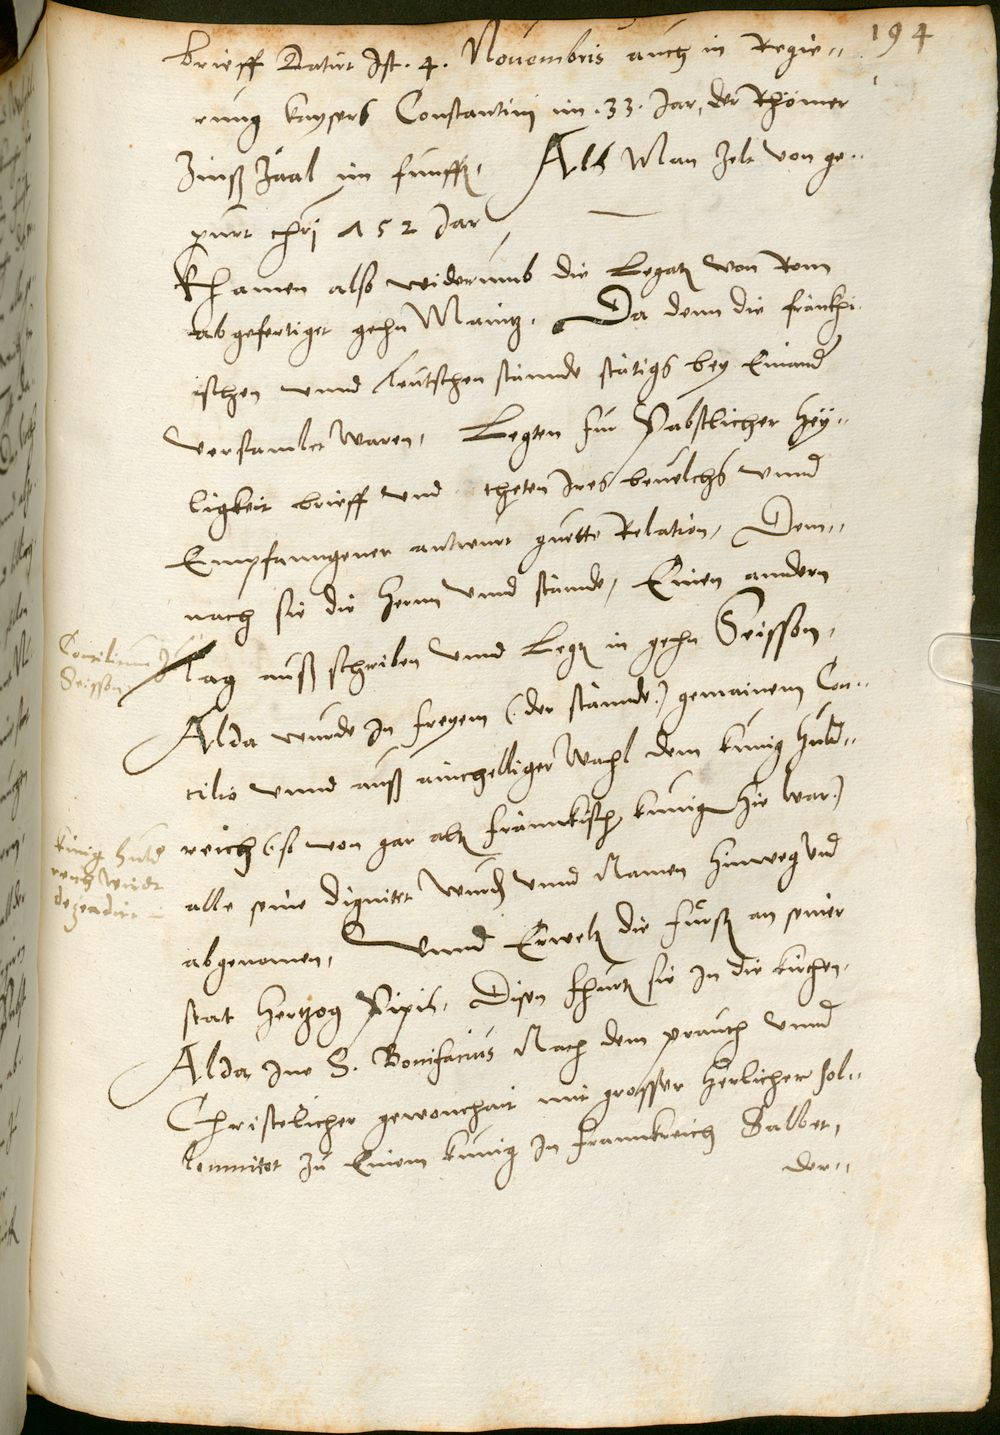 194
brieff Datirt Ist .4. Nouembris auch in Regie¬
rung kaysers Constantini im .33. Jar, der Rhömer
Zinß Zaal im funfften, Alß Man Zelt von ge¬
purt chri 752 Jar
Khamen also widerumb die Legaten von Rom
abgefertiget gehn Maintz. Da denn die fränkhi¬
ischen vnnd teutschen stännde stätigs bey Einander
versamlet waren, Legten für Päbstlicher Hey¬
ligkeit brieff vnd theten Ires beuelchs vnnd
Empfanngener antwurt guette Relation, Dem¬
nach sie die Herrn vnnd stännde, Einen andern
Tag auß schriben vnnd Legten in gehn Seisson,
Alda wurde In freyem (der stännde) gemainem Con¬
cilio vnnd auß ainhelliger Wahl dem künig Huld¬
reich (so von gar alten frännkischen künigen hie war)
alle seine dignitet Wurden vnnd Namen hinweg vnd
abgenomen, Vnnd Erwelten die fürsten an seiner
stat Hertzog Pipin, Disen fhürten sie In die kirchen,
Alda Ine S. Bonifacius Nach dem prauch vnnd
Christelicher gewonhait mit grosser herlicher sol¬
lennitet Zu Einem künig In Frannkreich Salbet,
der¬
Concilium Zu
Seisson
künig huld
reich wirdt
degradirt